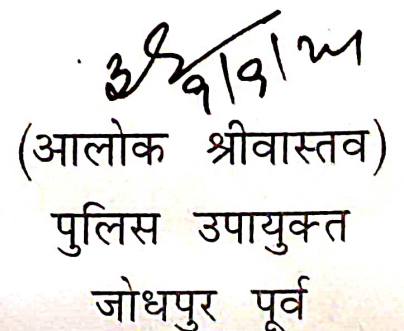 (आलोक श्रीवास्तव)
पुलिस उपायुक्त
जोधपुर पूर्व